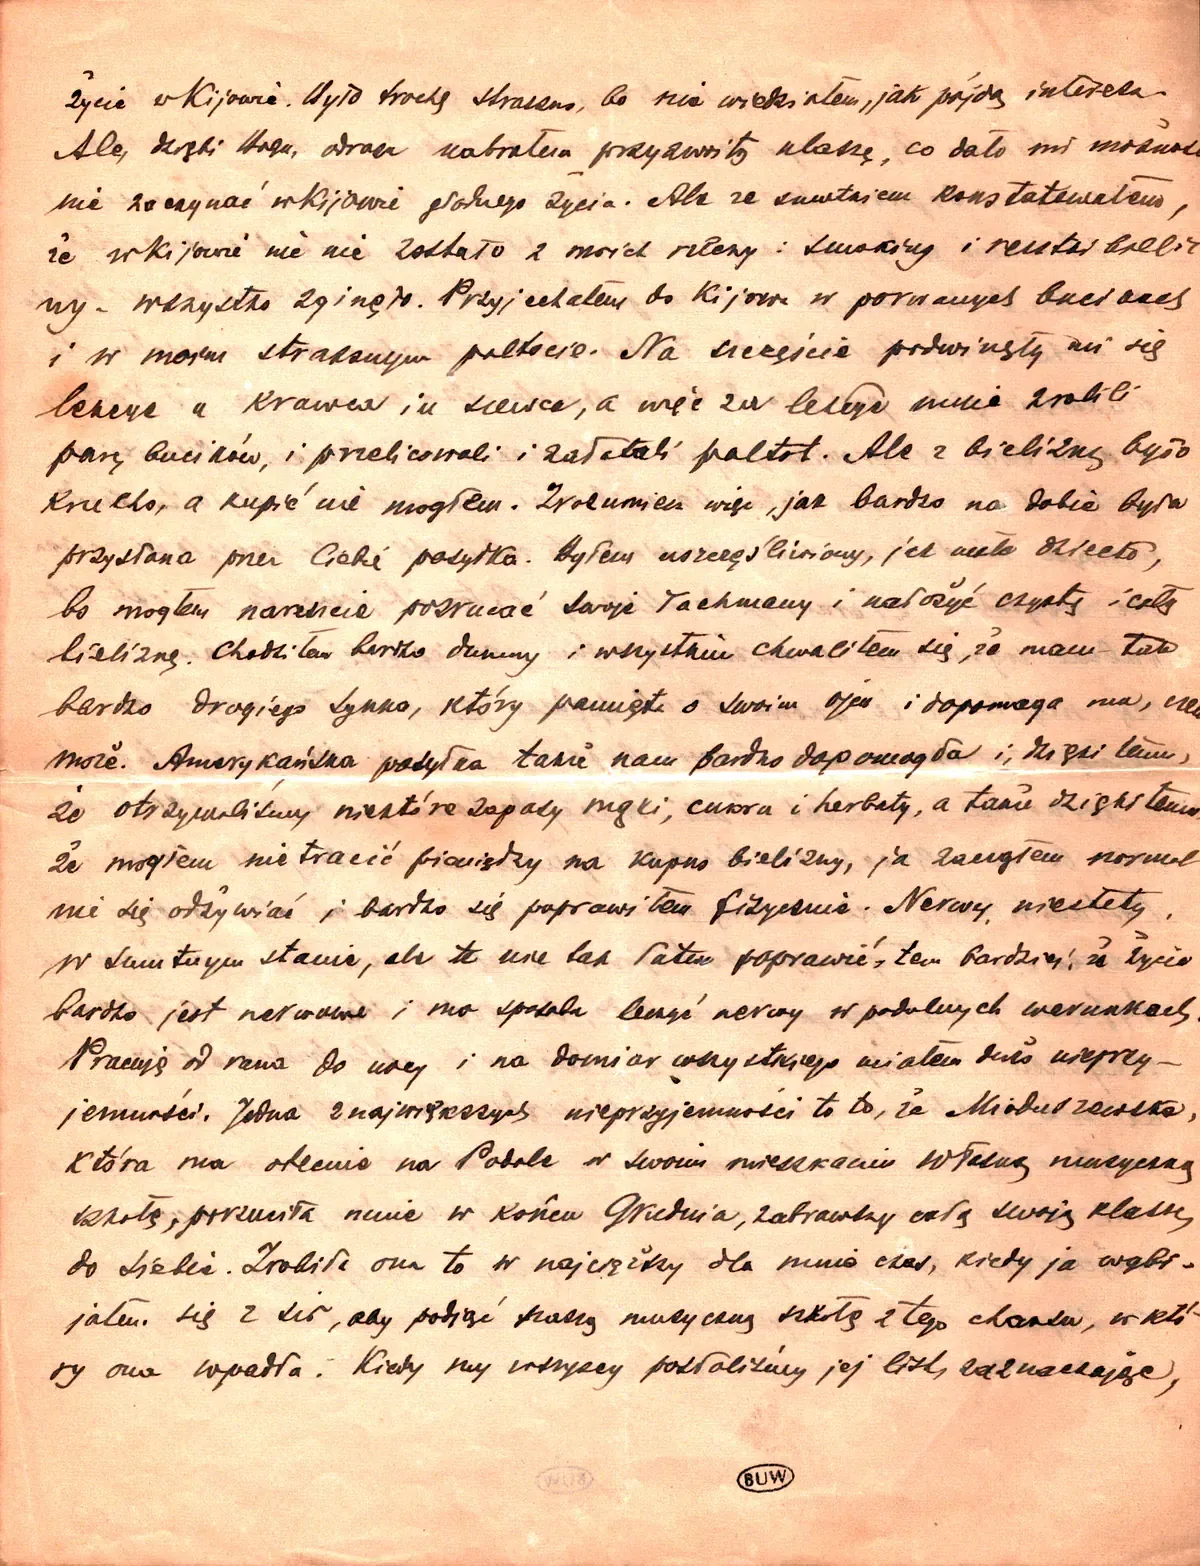 życie w Kijowie. Było trochę straszno, bo nie wiedziałem, jak pójdą interesa.
Ale, dzięki Bogu, odrazu nabrałem przyzwoitą klasę, co dało mi możność
nie zaczynać w Kijowie głodnego życia. Ale ze smutkiem konstatowałem,
że w Kijowie nic nie zostało z moich rzeczy: smoking i resztki bieliz
ny - wszystko zginęło. Przyjechałem do Kijowa w porwanych bucikach
i w moim strasznym paltocie. Na szczęście podwinęły mi się
lekcye u krawca i u szewca, a więc za lekcye mnie zrobili
parę bucików, i przelicowali i załatali paltot. Ale z bielizną było
krucho, a kupić nie mogłem. Zrozumiesz więc, jak bardzo na dobie była
przysłana przez Ciebie posyłka. Byłem uszczęśliwiony, jak małe dziecko,
bo mogłem nareszcie pozrucać swoje łachmany i nałożyć czystą i całą
bieliznę. Chodziłem bardzo dumny i wszystkim chwaliłem się, że mam tak
bardzo drogiego synka, który pamięta o swoim ojcu i dopomaga mu,
może. Amerykańska posyłka także nam bardzo dopomogła i, dzięki temu,
że otrzymaliśmy niektóre zapasy mąki, cukru i herbaty, a także dzięki temu,
że mogłem nie tracić pieniędzy na kupno bielizny, ja zacząłem normal
nie się odżywiać i bardzo się poprawiłem fizycznie. Nerwy, niestety,
w smutnym stanie, ale te nie tak łatwo poprawić, tem bardziej, że życie
bardzo jest nerwowe i ma sposobu leczyć nerwy w podobnych warunkach.
Pracuję od rana do nocy i na domiar wszystkiego miałem dużo nieprzy-
jemności. Jedna z największych nieprzyjemności to to, że Mioduszewska,
która ma obecnie na Podole w swoim mieszkaniu własną muzyczną
szkołę, porzuciła mnie w końcu Grudnia, zabrawszy całą swoją klasę
do siebie. Zrobiła ona to w najcięższy dla mnie czas, kiedy ja wybi-
jałem się z sił, aby podjąć naszą muzyczną szkołę z tego chaosu, w któ-
ry ona wpadła. Kiedy my wszyscy posłaliśmy jej list, zaznaczając,
BUW